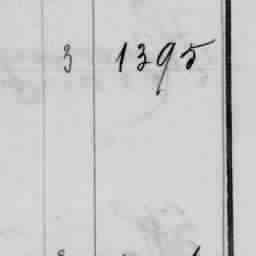 3 1395